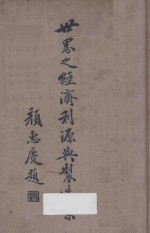 世界之經濟利源與製造
顏惠慶題